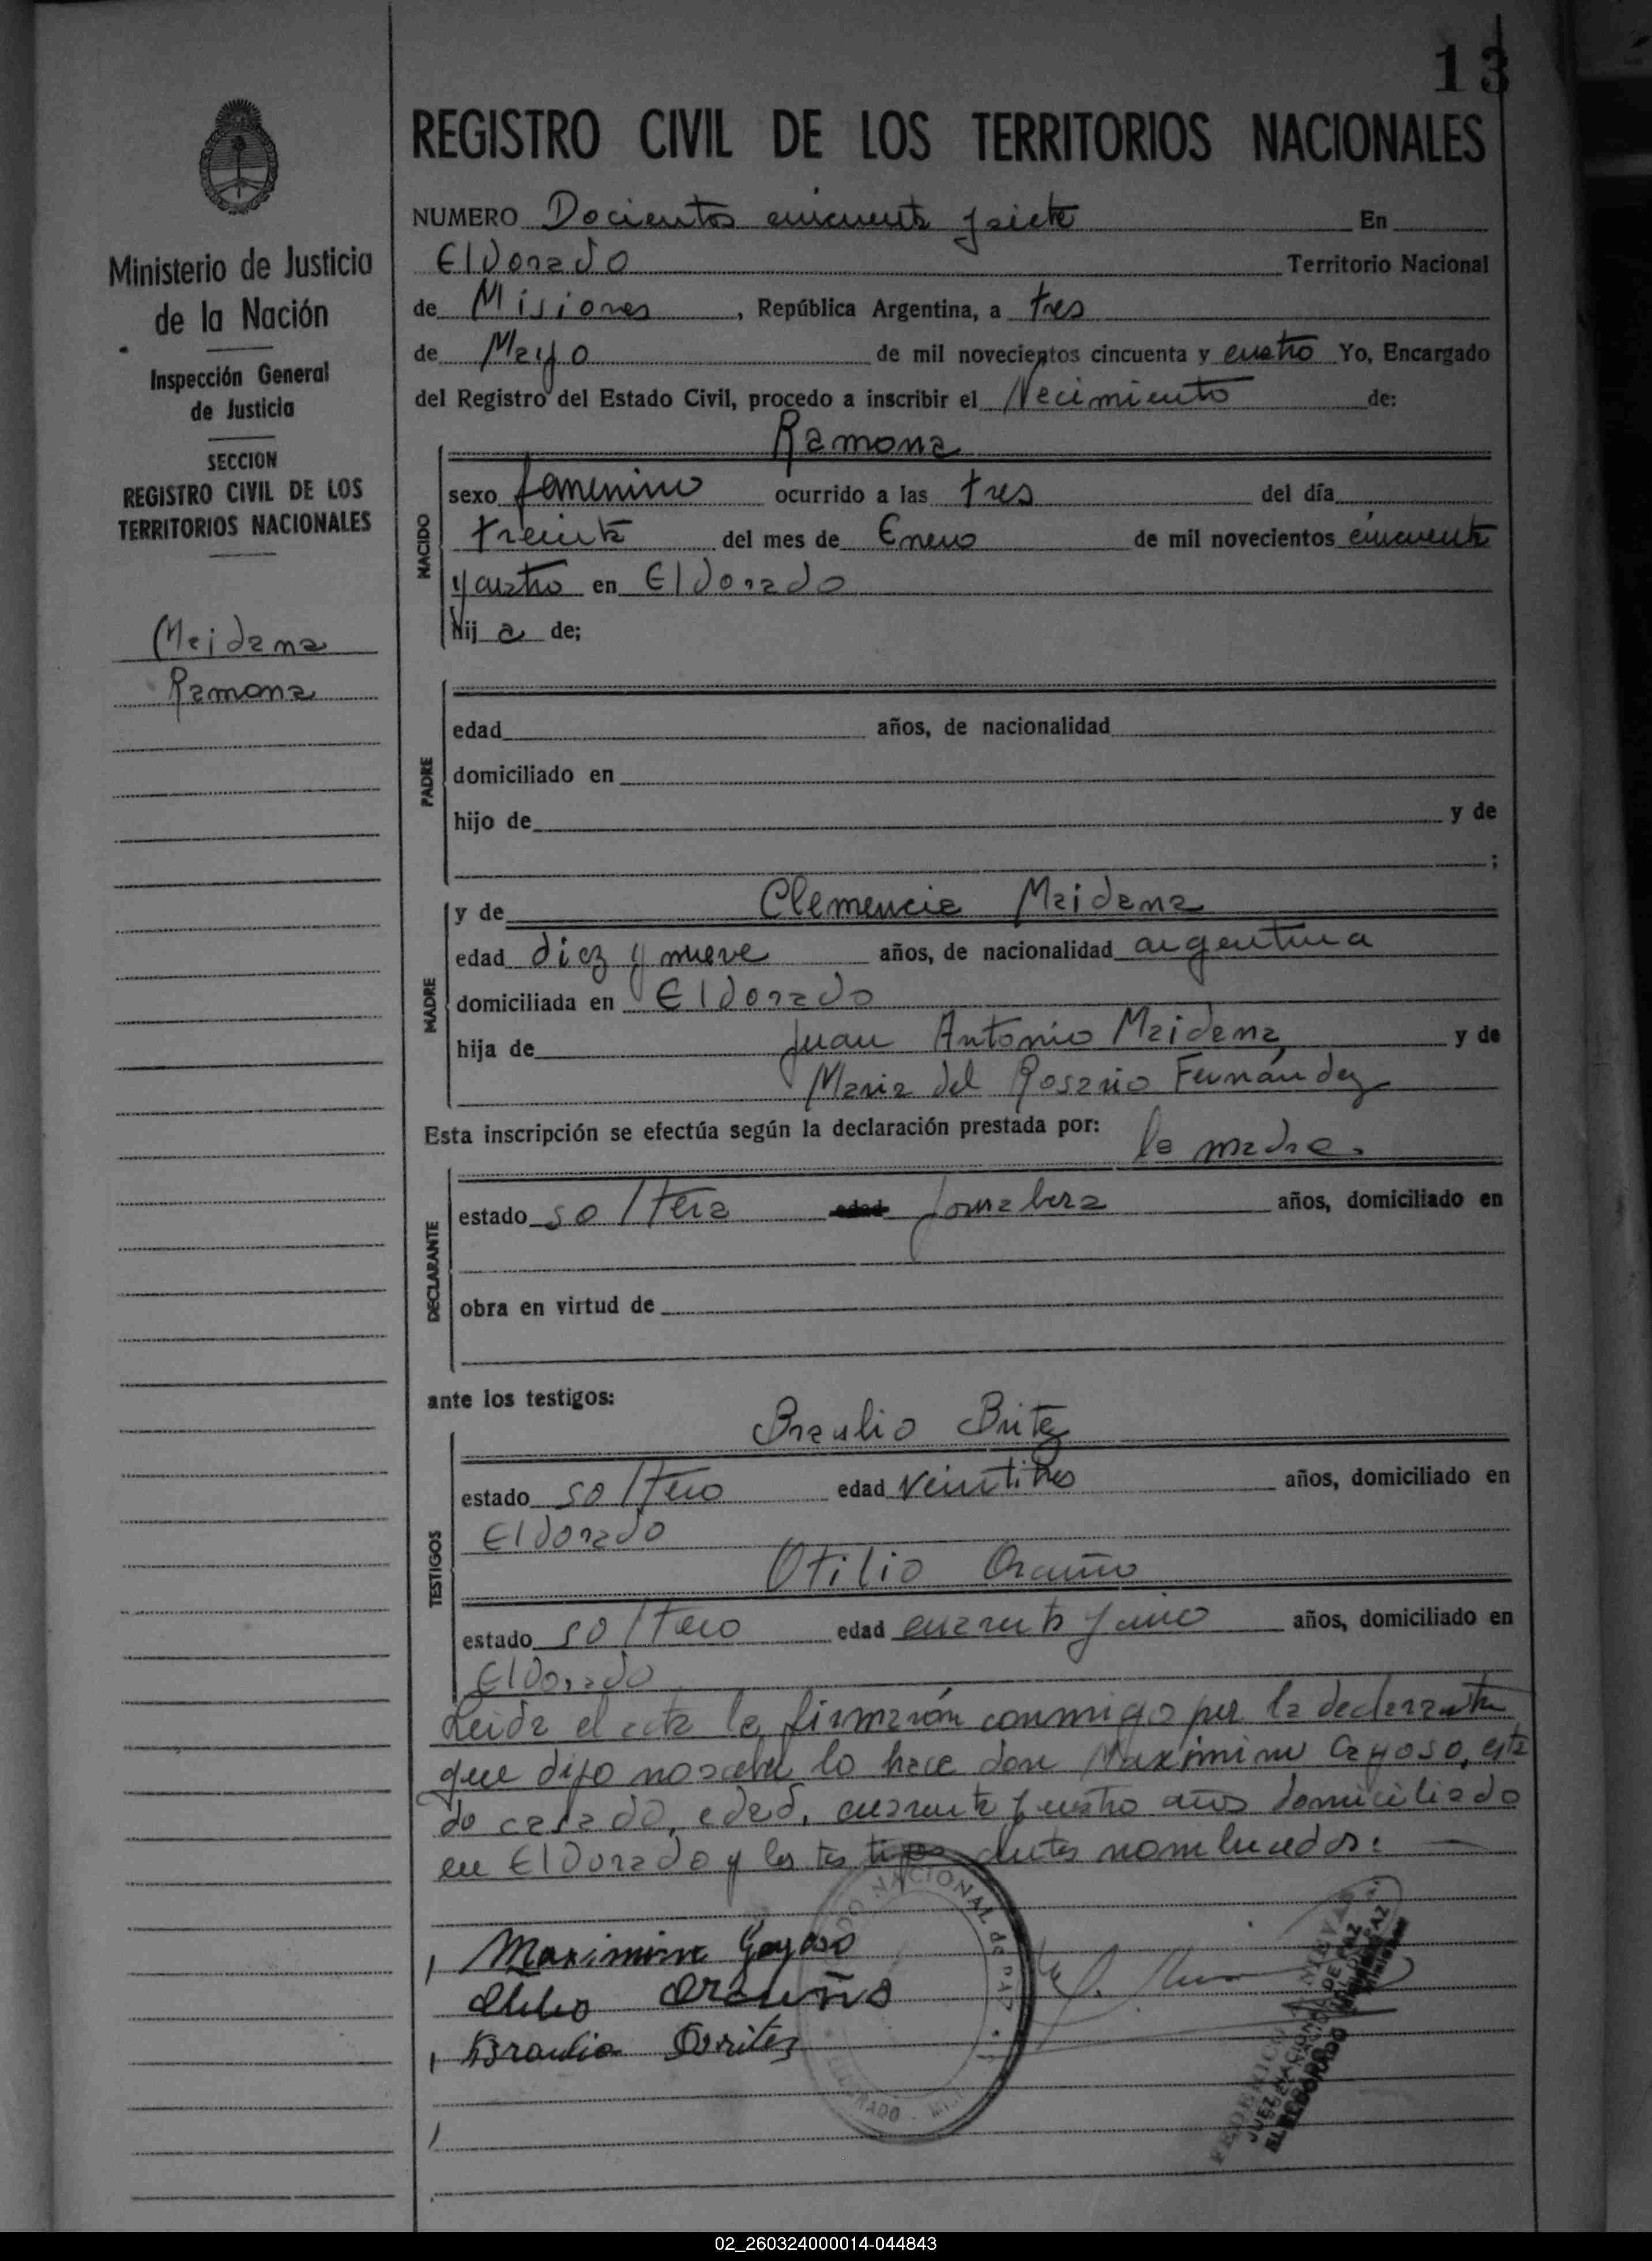 13
REGISTRO CIVIL DE LOS TERRITORIOS NACIONALES
Ministerio de Justicia
de la Nación
Inspección General
de Justicia
SECCION
REGISTRO CIVIL DE LOS
TERRITORIOS NACIONALES
Maidana
Ramona
NUMERO Docientos cincuenta y siete En
Eldorado Territorio Nacional
de Misiones, República Argentina, a tres
de Mayo de mil novecientos cincuenta y cuatro Yo, Encargado
del Registro del Estado Civil, procedo a inscribir el Nacimiento de:
Ramona
NACIDO
sexo femenino ocurrido a las tres del día
treinta del mes de Enero de mil novecientos cincuenta
y cuatro en Eldorado
hij a de;
PADRE
edad años, de nacionalidad
domiciliado en
hijo de y de
;
MADRE
y de Clemencia Maidana
edad diez y nueve años, de nacionalidad argentina
domiciliada en Eldorado
hija de Juan Antonio Maidana y de
Maria del Rosario Fernández
Esta inscripción se efectúa según la declaración prestada por: la madre.
DECLARANTE
estado soltera edad años, domiciliado en
obra en virtud de
ante los testigos:
TESTIGOS
Braulio Britez
estado soltero edad veintitres años, domiciliado en
Eldorado
Otilio Orauño
estado soltero edad cuarenta y años, domiciliado en
Eldorado
Leida el acta la firmarón conmigo por la declarante
que dijo no saber lo hace don Maximino Gayoso, esta
do casado, edad, cuarenta y cuatro años domiciliado
en Eldorado y los testigos antes nombrados:
Maximino Gayoso
Otilio Orauño
Braulio Britez
NACIONAL de PAZ
JUEZ NACIONAL DE PAZ
ELDORADO
02_260324000014-044843